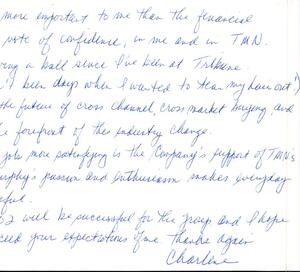 more important to me than the financial
vote of confidence, in me and in TMN.
ving a ball since I've been at Tribune.
n't been days when I wanted to tear my hair out!)
the future of cross channel, cross market buying, and
e forefront of this industry change.
job more satisfying is the Company's support of TMN's
urphy's passion and enthusiasm makes everyday
eful.
02 will be successful for the group and I hope
ceed your expectations of me. Thanks again
Charlene